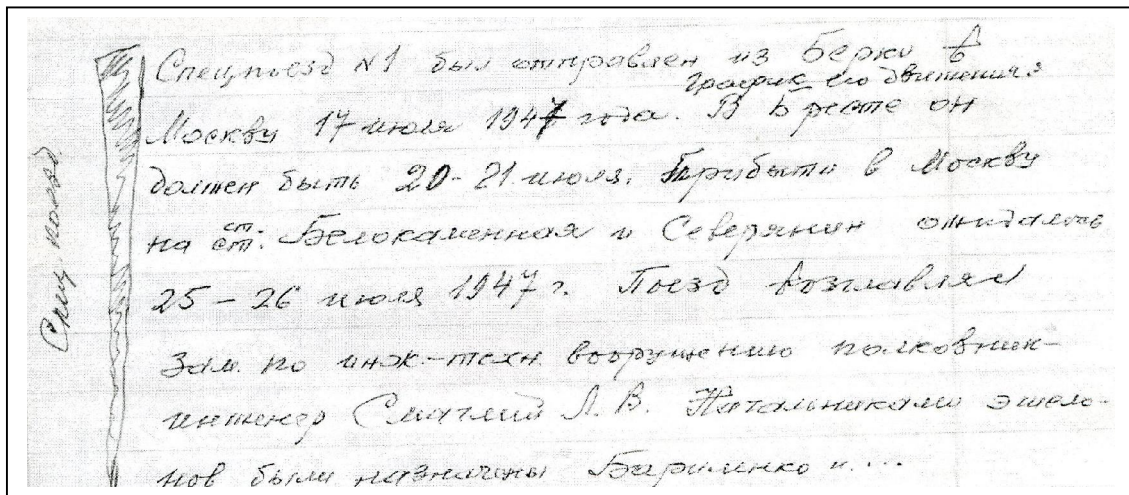 Спец. поезд
Спецпоезд N1 был отправлен из Берки в
график его движения:
Москву 17 июля 1947 года. В Бресте он
должен быть 20-21 июля. Прибытие в Москву
на ст. Белокаменная и Северянин ожидалось
25-26 июля 1947 г. Поезд возглавлял
Зам. по инж-техн. вооружению полковник-
инженер Смаглий Л. В. Начальниками эшело-
нов были назначены Бариленко и....